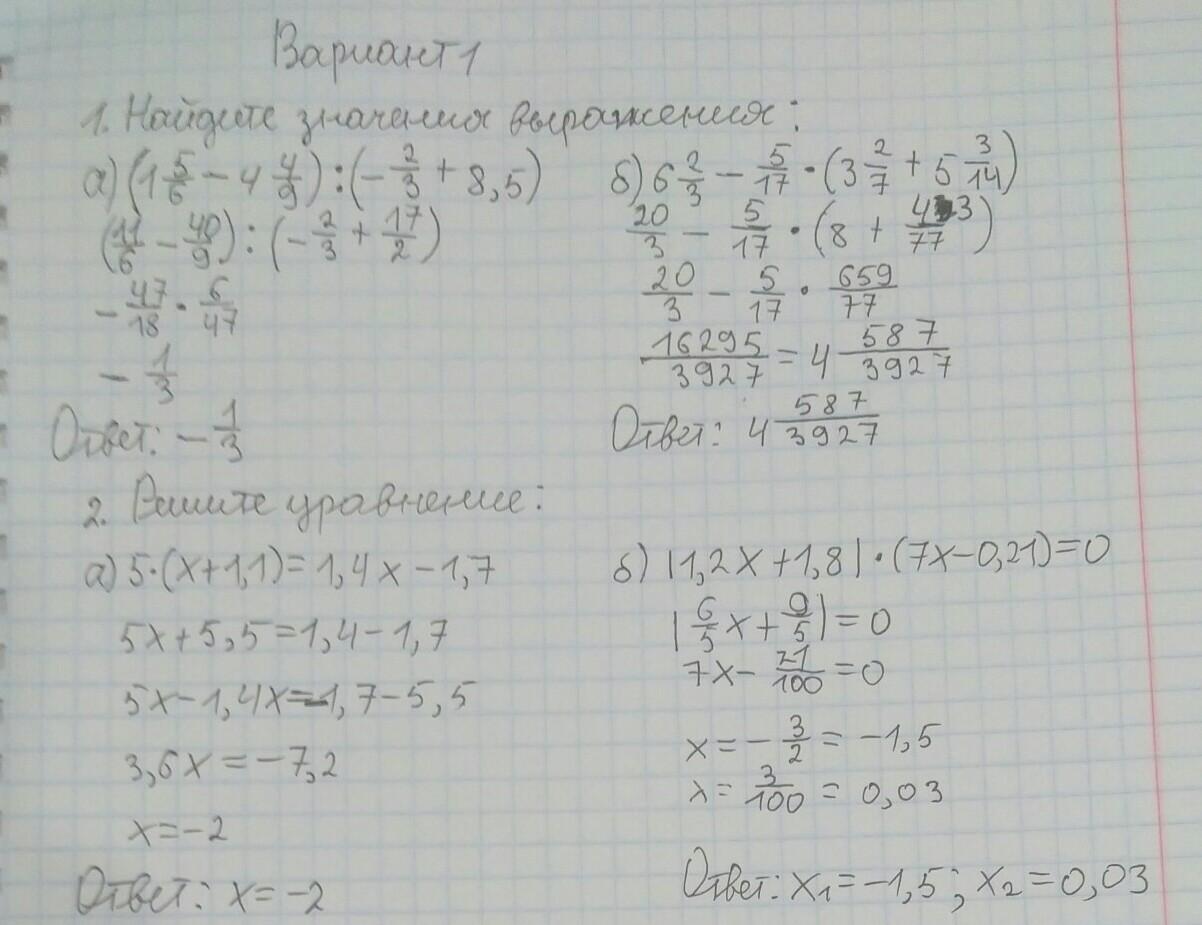 Вариант 1
1. Найдите значения выражения:
а) (1 5/6 − 4 4/9) : (−2/3 + 8,5)
(11/6 − 40/9) : (−2/3 + 17/2)
− 47/18 · 6/47
− 1/3
Ответ: − 1/3
б) 6 2/3 − 5/17 · (3 2/7 + 5 3/14)
20/3 − 5/17 · (8 + /77)
20/3 − 5/17 · 659/77
16295/3927 = 4 587/3927
Ответ: 4 587/3927
2. Решите уравнение:
а) 5·(x+1,1)=1,4x−1,7
5x+5,5=1,4−1,7
5x−1,4x=−1,7−5,5
3,6x=−7,2
x=−2
Ответ: x=−2
б) |1,2x+1,8|·(7x−0,21)=0
|6/5 x + 9/5| = 0
7x − 21/100 = 0
x = − 3/2 = −1,5
x = 3/100 = 0,03
Ответ: x₁=−1,5; x₂=0,03